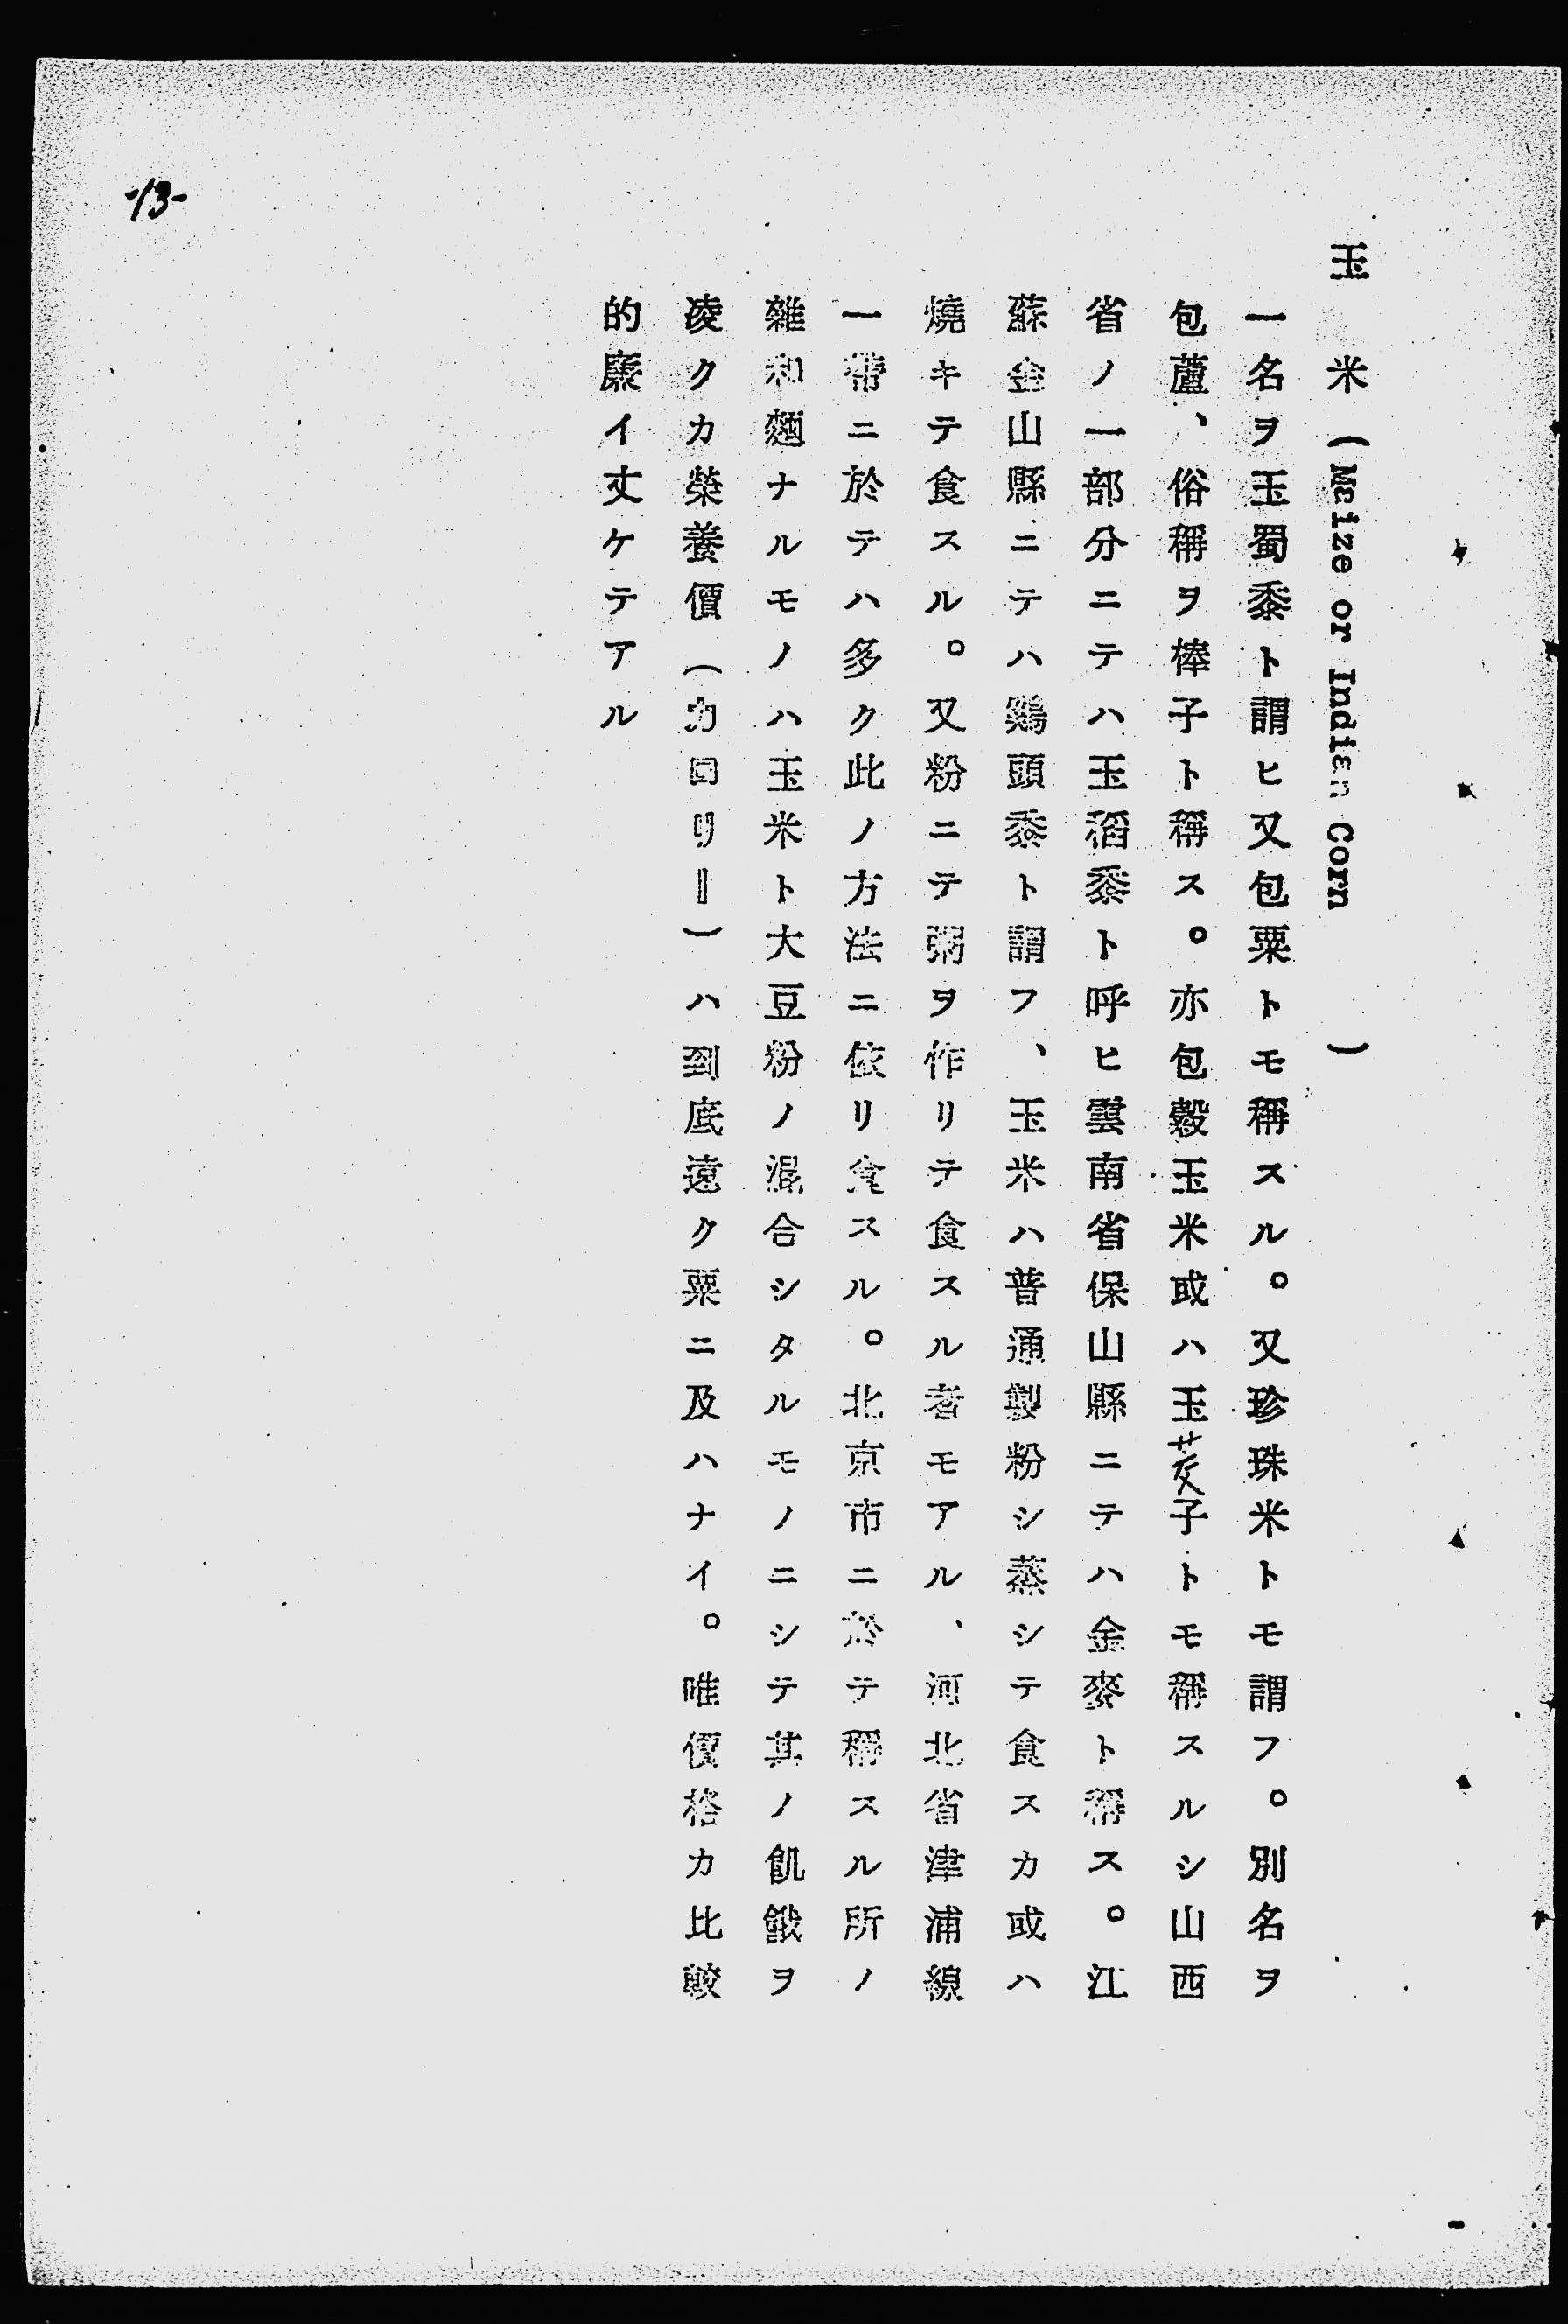 玉米(Maize or Indian Corn)
一名ヲ玉蜀黍ト謂ヒ又包粟トモ稱スル。又珍珠米トモ謂フ。別名ヲ
包蘆、俗稱ヲ棒子ト稱ス。亦包穀玉米或ハ玉茭子トモ稱スルシ山西
省ノ一部分ニテハ玉稻黍ト呼ヒ雲南省保山縣ニテハ金麥ト稱ス。江
蘇金山縣ニテハ鷄頭黍ト謂フ、玉米ハ普通製粉シ蒸シテ食スカ或ハ
燒キテ食スル。又粉ニテ粥ヲ作リテ食スル者モアル、河北省津浦線
一帶ニ於テハ多ク此ノ方法ニ依リ食スル。北京市ニ於テ稱スル所ノ
雜和麵ナルモノハ玉米ト大豆粉ノ混合シタルモノニシテ其ノ飢餓ヲ
凌クカ榮養價(カロリー)ハ到底遠ク粟ニ及ハナイ。唯價格カ比較
的廉イ丈ケテアル
-13-